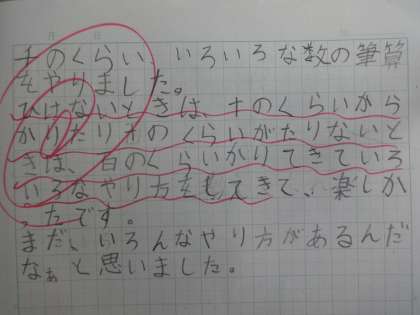 千のくらい、いろいろな数の筆算
をやりました。
ひけないときは、十のくらいから
かりたり十のくらいがたりないと
きは、百のくらいかりてきていろ
いろなやり方をもしてきて、楽しか
ったです。
まだ、いろんなやり方があるんだ
なぁと思いました。